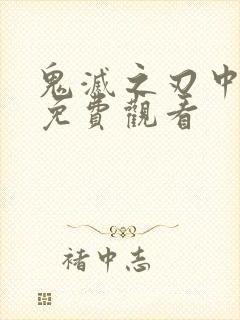 鬼滅之刃中
免費觀看
褚中志